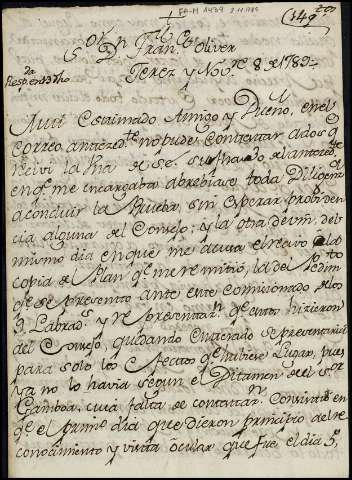 FA-M 1439
(349)
Sor Dn Franco Oliver
Jerez y Nove 8 de 1789
Respda en 13 dho
Mui Estimado Amigo y Dueño, en el
correo antecedte no pude contextar a dos q
recivi la Una de su fha antecedte
en qe me encargaba abrebiase toda Diligena
a concluir la Prueba, sin esperar probiden
cia alguna del Consejo; y la otra de Vm. del
mismo dia en que me acusa el recivo de la
copia del Plan qe me remitió, la del Pedimto
qe se presento ante este comisionado
3 Labrads y representazn qe estos hizieron
del Consejo, quedando enterado se presentaria
para solo los efectos qe hubiese Lugar, pues
ya no lo havia segun el Dictamen de el Sor
Gamboa, cuia falta de contextazn Consistió en
qe el primo dia que dieron principio del re
conocimiento y vista ocular que fue el dia 5,